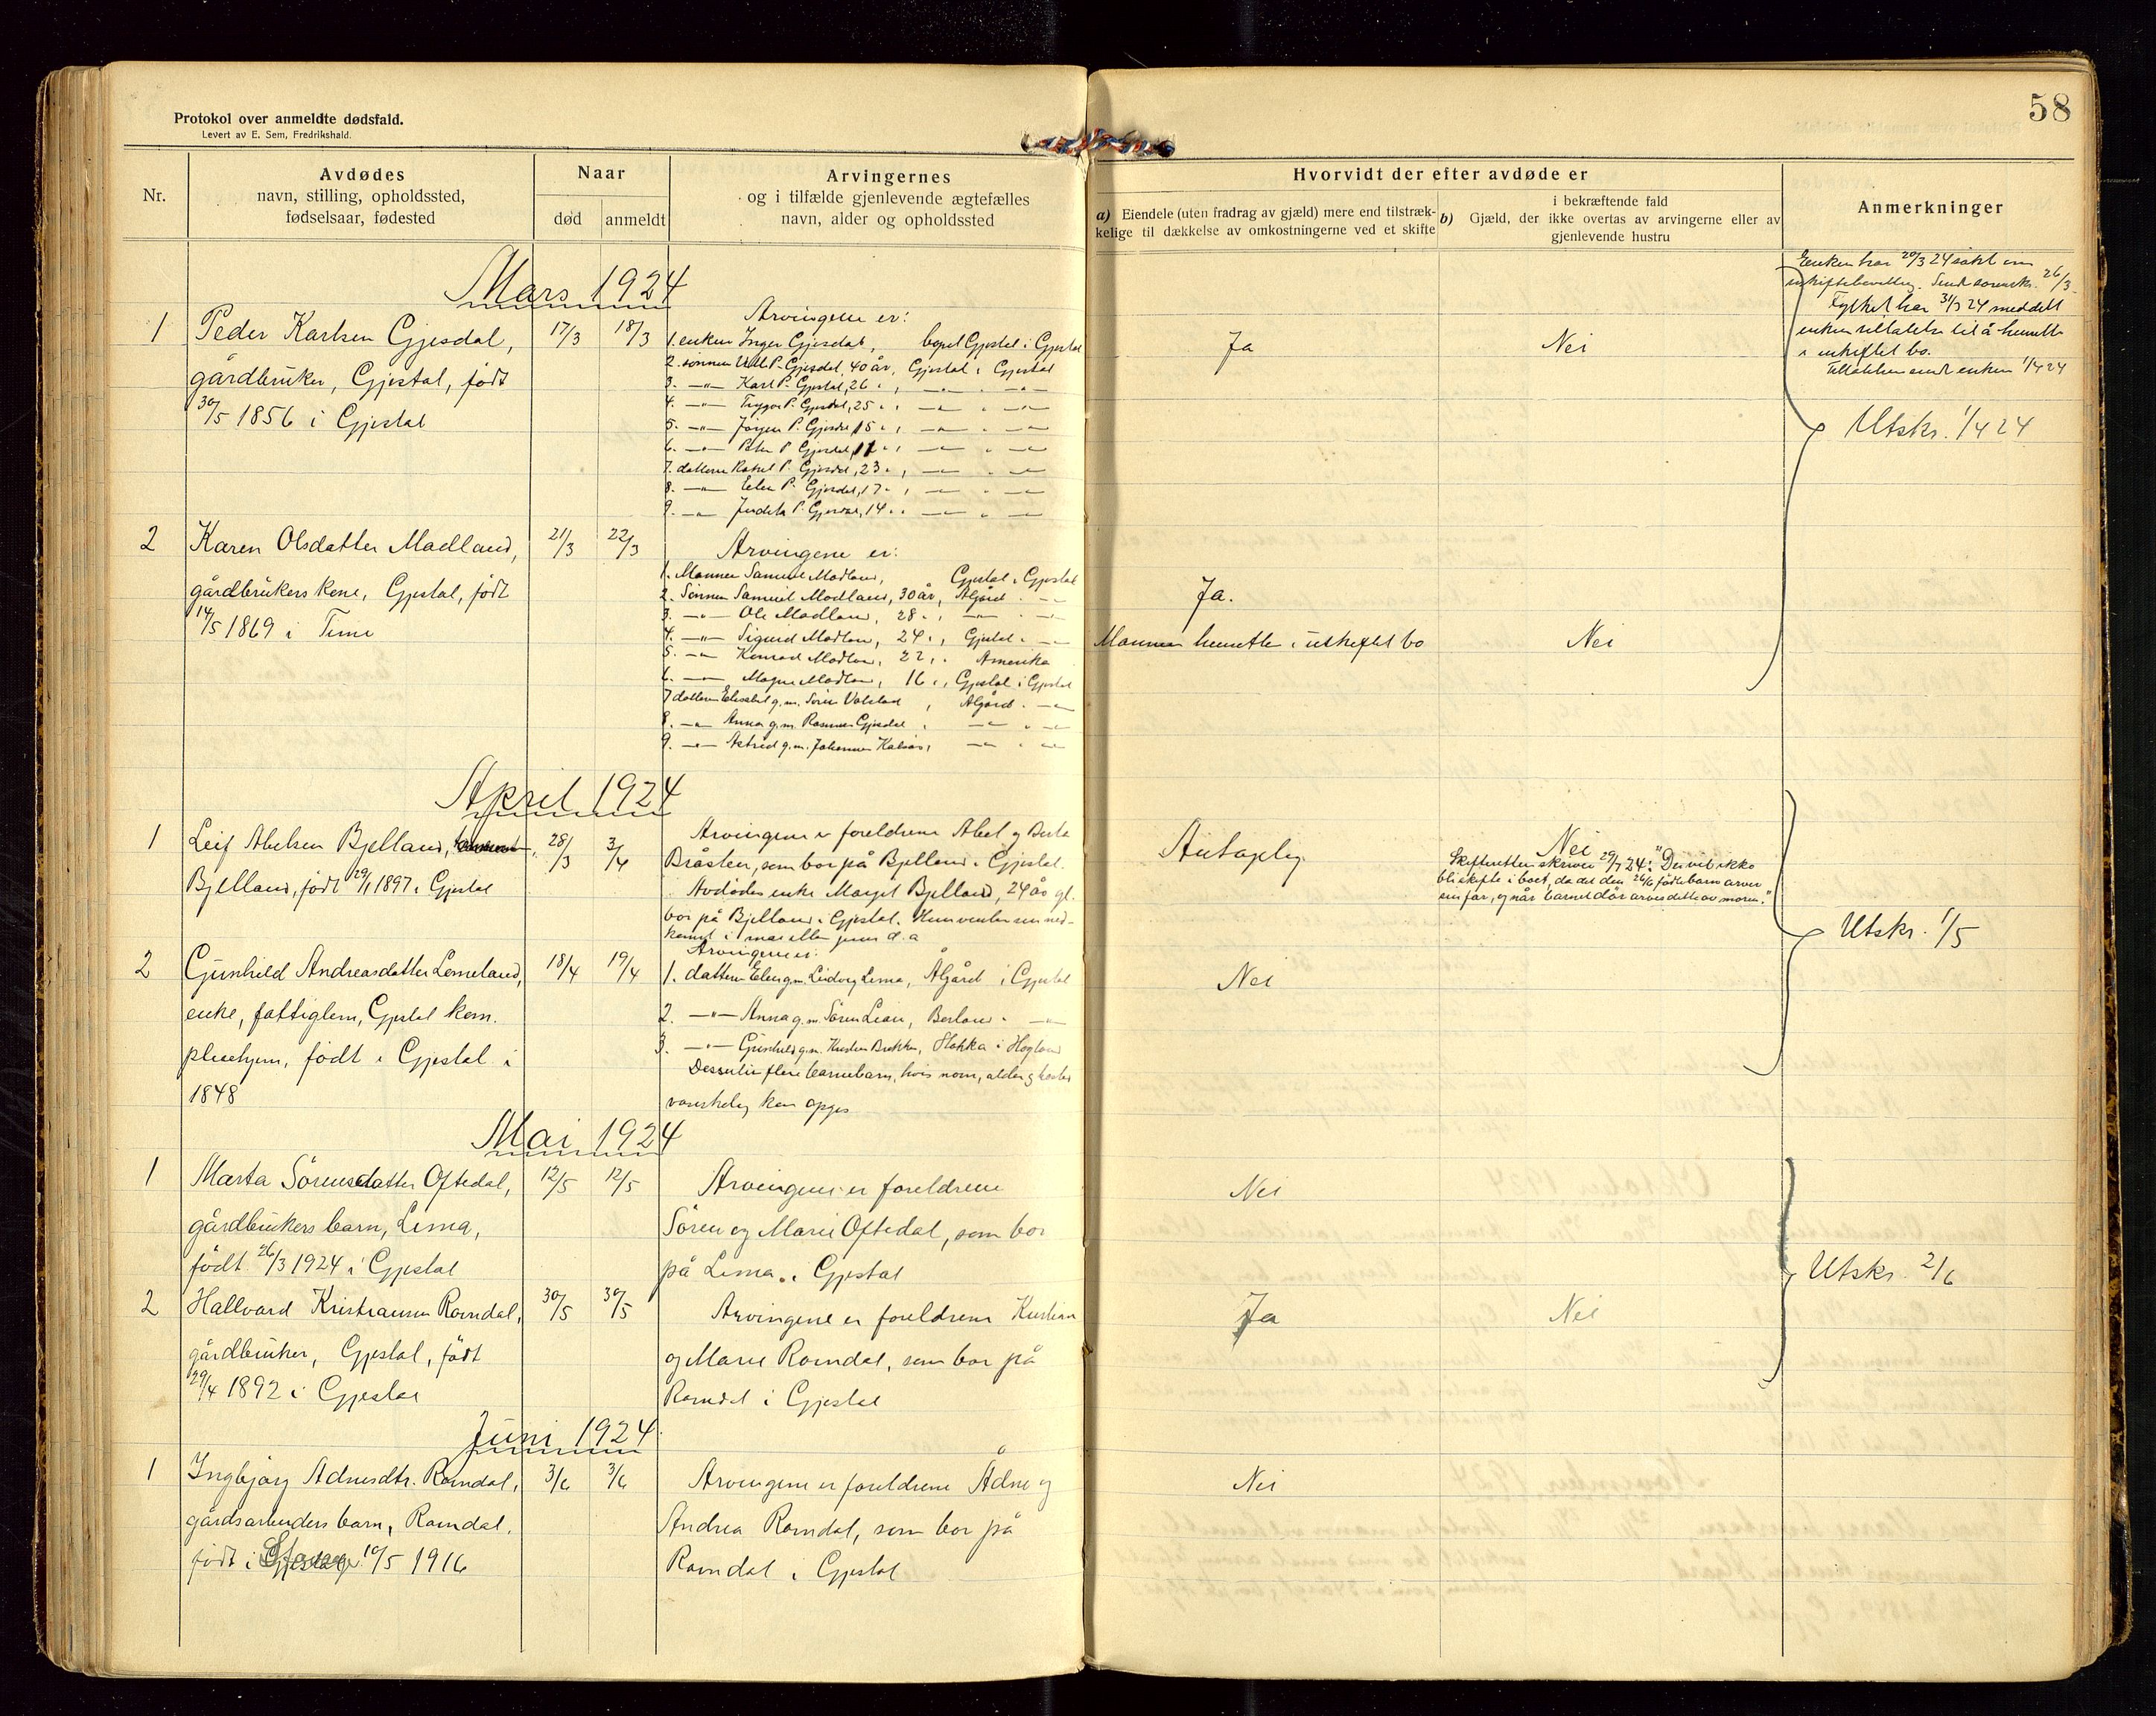 58
Protokol over anmeldte dødsfald.
Levert av E. Sem, Fredrikshald.
Nr.
Avdødes
navn, stilling, opholdssted,
fødselsaar, fødested
Naar
død
anmeldt
Arvingernes
og i tilfælde gjenlevende ægtefælles
navn, alder og opholdssted
Hvorvidt der efter avdøde er
a) Eiendele (uten fradrag av gjæld) mere end tilstræk-
kelige til dækkelse av omkostningerne ved et skifte
i bekræftende fald
b) Gjæld, der ikke overtas av arvingerne eller av
gjenlevende hustru
Anmerkninger
Mars 1924
1
Peder Karlsen Gjesdal,
gårdbruker, Gjestal, født
30/5 1856 i Gjestal
17/3
18/3
Arvingene er:
1. enken Inger Gjesdal, bopel Gjestal i Gjestal
2. sönnen P. Gjesdal, 40 år, Gjestal i Gjestal
3. —"— Karl P. Gjestal, 26 " , —"— " —"—
4. —"— Trygve P. Gjesdal, 25 " , —"— " —"—
5. —"— Jörgen P. Gjesdal, 15 " , —"— " —"—
6. —"— Peter P. Gjesdal, " , —"— " —"—
7. datteren Rakel P. Gjesdal, 23 " , —"— " —"—
8. —"— Elen P. Gjesdal, 17 " , —"— " —"—
9. —"— P. Gjesdal, 14 " , —"— " —"—
Ja
Nei
Enken har 20/3 24 søkt om
uskiftebevilling. Sendt sorensk. 26/3
Fylket har 31/3 24 meddelt
enken tillatelse til å hensitte
i uskiftet bo.
Tillatelsen sendt enken 1/4 24
Utskr. 1/4 24
2
Karen Olsdatter Madland,
gårdbrukers kone, Gjestal, født
14/5 1869 i Time
21/3
22/3
Arvingene er:
1. Mannen Samuel Madland, Gjestal i Gjestal
2. Sönnen Samuel Madland, 30 år, Ålgård " —"—
3. —"— Ole Madland, 28 " , —"— " —"—
4. —"— Sigurd Madland, 24 " , Gjestal " —"—
5. —"— Konrad Madland, 22 " , Amerika
6. —"— Magne Madland, 16 " , Gjestal i Gjestal
7 datteren Elisabet g.m. Sören Valstad, Ålgård " —"—
8. —"— Anna g.m. Rasmus Gjesdal , —"— " —"—
9. —"— Astrid g.m. Johannes , —"— " —"—
Ja.
Mannen hensitter i uskiftet bo
Nei
April 1924
1
Leif Abelsen Bjelland,
Bjelland, født 29/1 1897 i Gjestal
28/3
3/4
Arvingene er foreldrene Abel og Berta
Bråsten, som bor på Bjelland i Gjestal.
Avdödes enke Marget Bjelland, 24 år gl.
bor på Bjelland i Gjestal. Hun venter sin ned-
komst i mai eller juni d.a
Antagelig
Nei
Skifteretten skriver 29/7 24: "Der vil ikke
bli skifte i boet, da det den 26/6 fødte barn arver
sin far, og når barnet dör arves dette av moren."
Utskr. 1/5
2
Gunhild Andreasdatter Lemeland,
enke, fattiglem, Gjestal kom.
pleiehjem, född i Gjestal i
1848
18/4
19/4
Arvingene er:
1. datteren Elen g.m. Ludvig Lima, Ålgård i Gjestal
2. —"— Anna g.m. Sören Lian, " —"—
3. —"— Gunhild g.m. Brekke, i Högland
Dessuten flere barnebarn, hvis navn, alder og
vanskelig kan opgis
Nei
Mai 1924
1
Marta Sörensdatter Oftedal,
gårdbrukers barn, Lima,
född 26/3 1924 i Gjestal
12/5
12/5
Arvingene er foreldrene
Sören og Marie Oftedal, som bor
på Lima i Gjestal
Nei
Utskr. 2/6
2
Hallvard Kristiansen Ravndal,
gårdbruker, Gjestal, född
29/4 1892 i Gjestal
30/5
30/5
Arvingene er foreldrene Kristian
og Marie Ravndal, som bor på
Ravndal i Gjestal
Ja
Nei
Juni 1924
1
Ingbjörg Adnesdtr. Ravndal,
gårdsarbeiders barn, Ravndal,
född i 10/5 1916
3/6
3/6
Arvingene er foreldrene Ådne og
Andrea Ravndal, som bor på
Ravndal i Gjestal
Nei